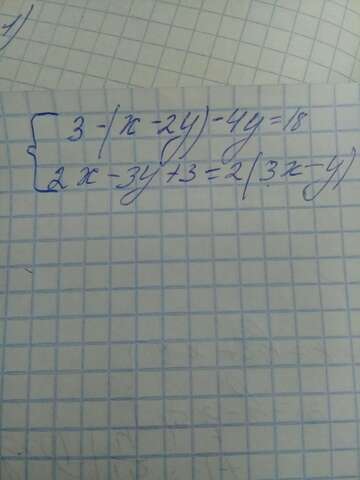 1)
3-(x-2y)-4y=18
2x-3y+3=2(3x-y)